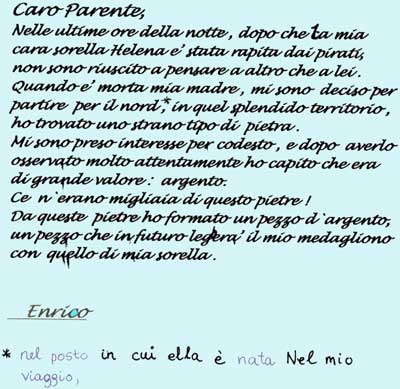 Caro Parente,
Nelle ultime ore della notte, dopo che la mia
cara sorella Helena e' stata rapita dai pirati,
non sono riuscito a pensare a altro che a lei.
Quando e' morta mia madre, mi sono deciso per
partire per il nord,* in quel splendido territorio,
ho trovato uno strano tipo di pietra.
Mi sono preso interesse per codesto, e dopo averlo
osservato molto attentamente ho capito che era
di grande valore: argento.
Ce n'erano migliaia di questo pietre!
Da queste pietre ho formato un pezzo d'argento,
un pezzo che in futuro legherà il mio medagliono
con quello di mia sorella.
Enrico
* nel posto in cui ella è nata Nel mio
viaggio,